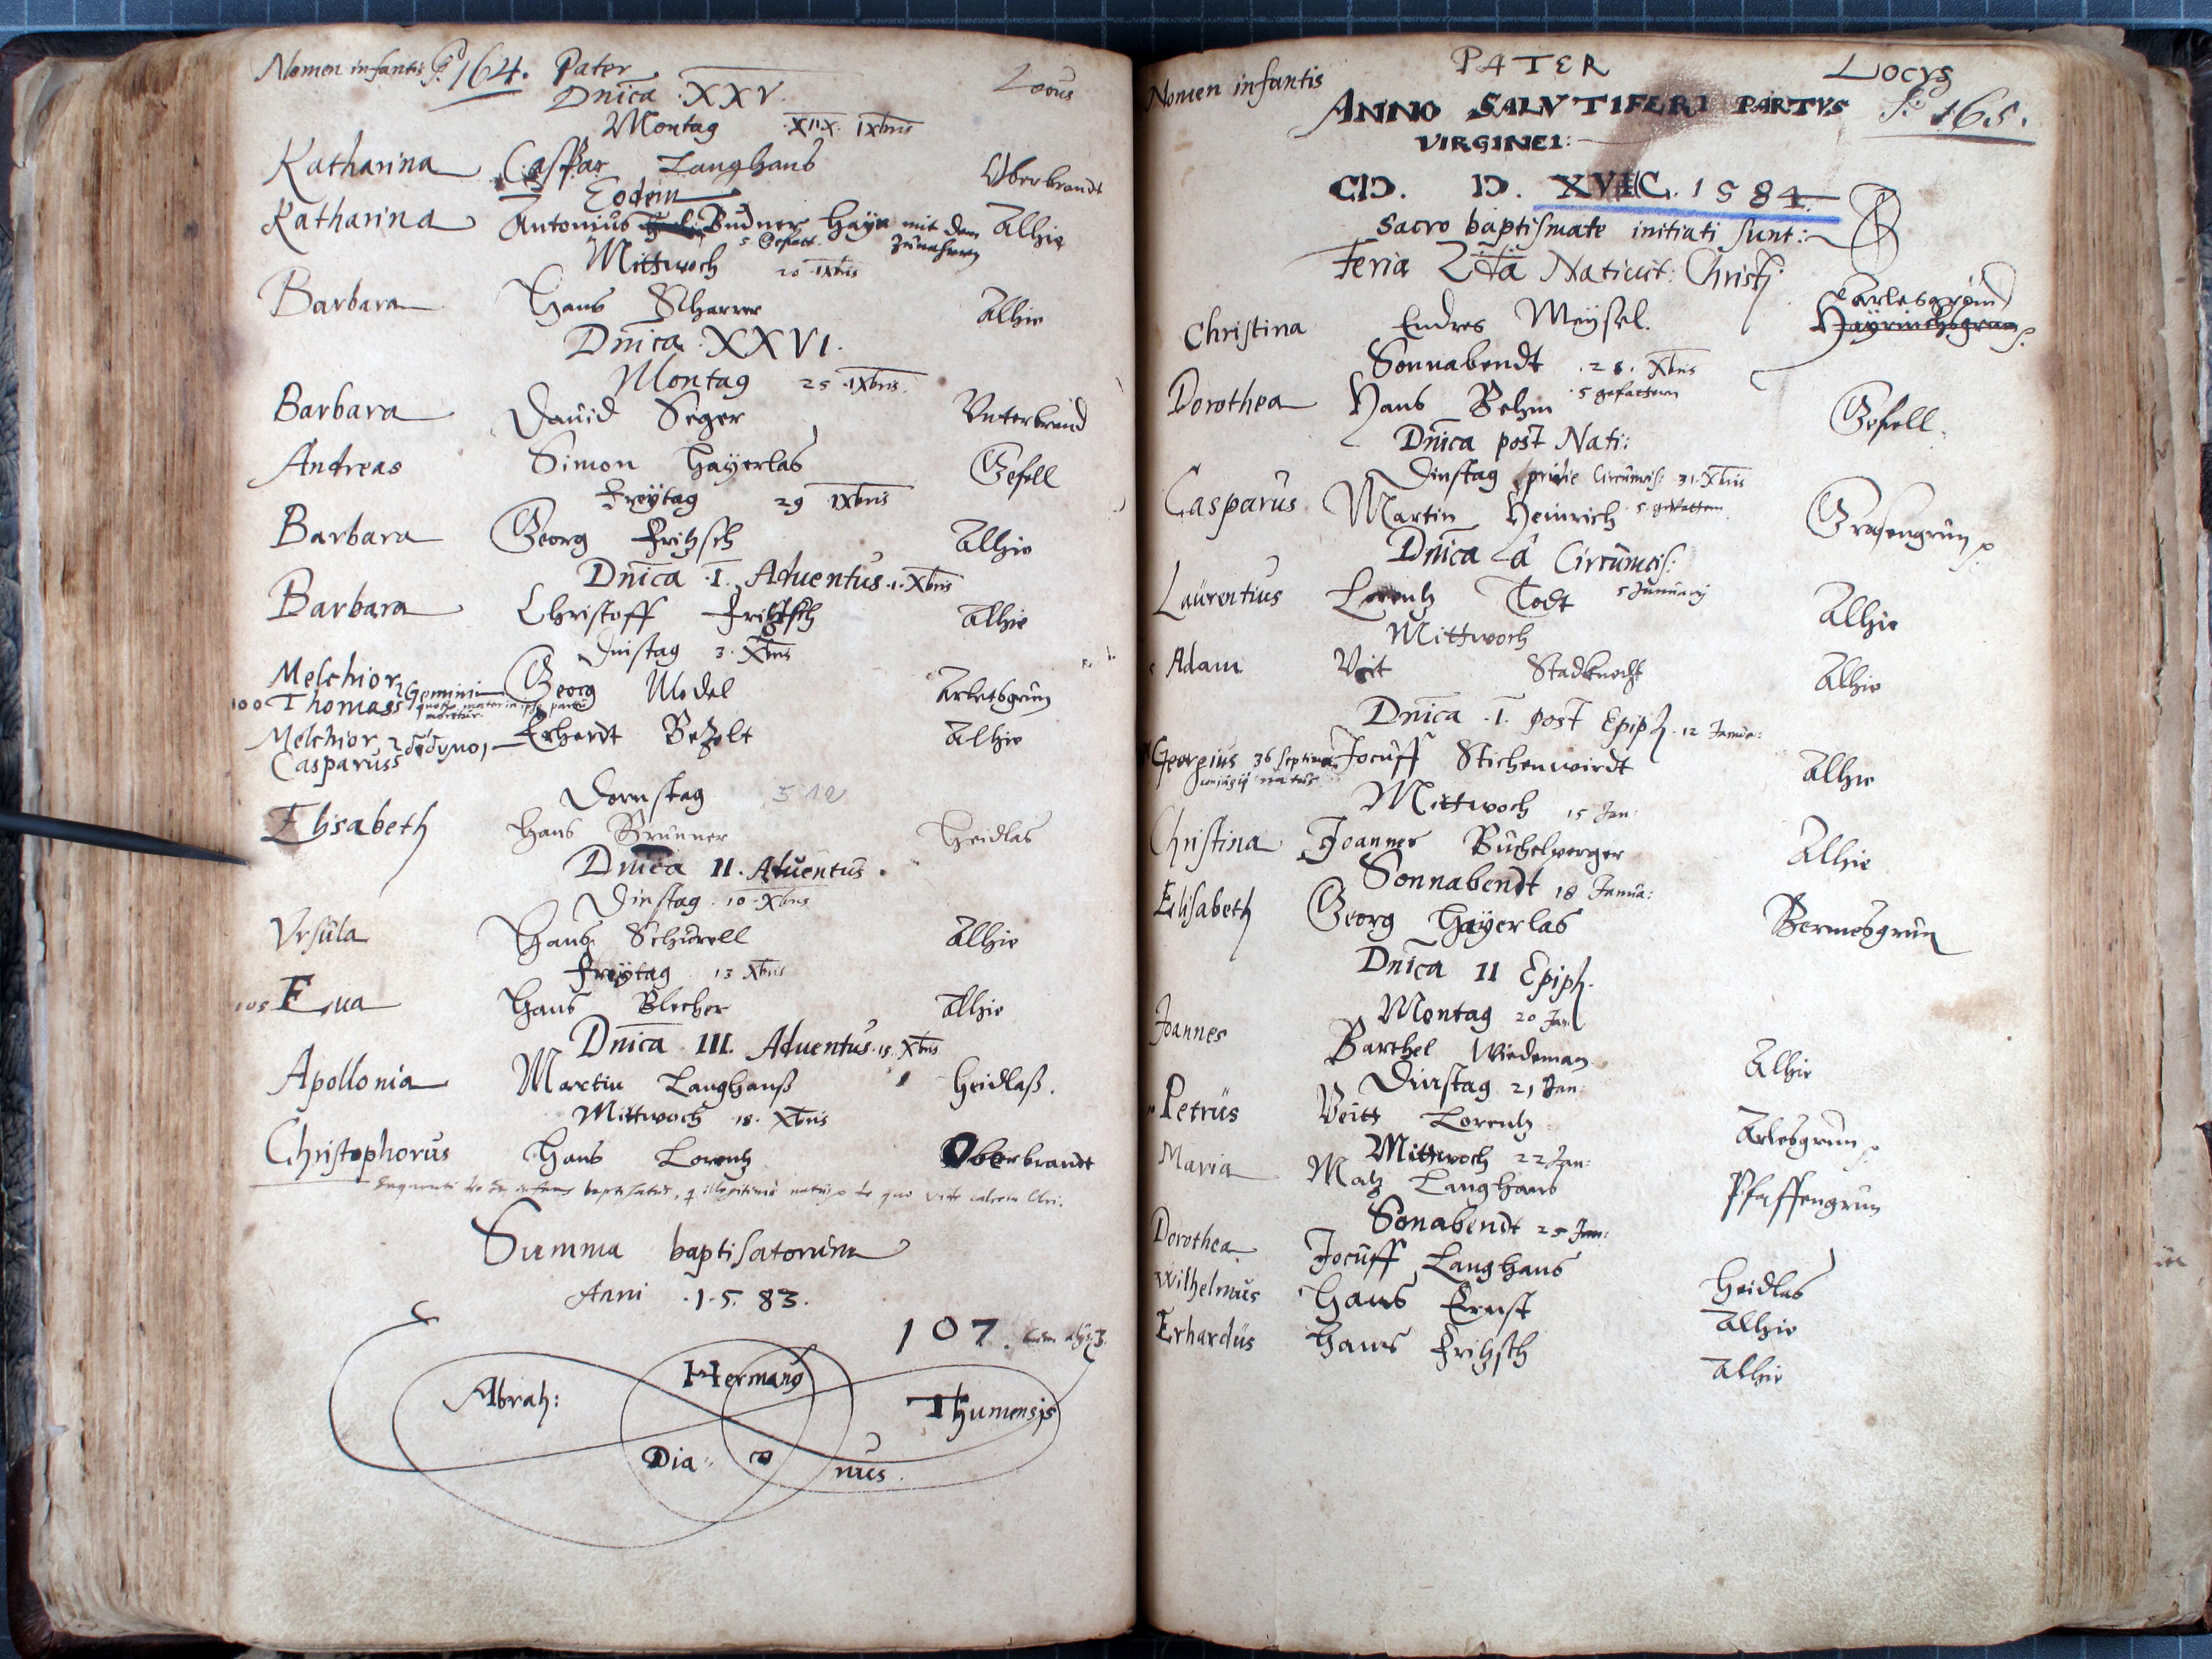 Nomen infantis F. 164. Pater Locus
Dnica XXV.
Montag XIIX. IXbris
Katharina Caspar Langhans Oberbrandt
Eodem
Katharina Antonius Büdner Hayn mit dem Alhie
5 Gefatt. Zunahmen
Mittwoch 20 IXbris
Barbara Hans Scharrer Alhie
Dnica XXVI.
Montag 25 IXbris.
Barbara Dauid Seger Vnterbrand
Andreas Simon Hayerlas Gefell
Freytag 29 IXbris
Barbara Georg Fritzsch Alhie
Dnica I. Aduentus 1. Xbris
Barbara Christoff Fritzsch Alhie
Dinstag 3. Xbris
Melchior Gemini Georg Model Arletsgrün
100 Thomas
Melchior δίδυμοι Erhardt Betzolt Alhie
Casparus
Dornstag 5 12
Elisabeth Hans Brunner Heidlas
Dnica II. Aduentus.
Dinstag 10 Xbris
Vrsula Hans Schürell Alhie
Freytag 13 Xbris
105 Eua Hans Blecher Alhie
Dnica III. Aduentus 15. Xbris
Apollonia Martin Langhanß Heidlaß.
Mittwoch 18. Xbris
Christophorus Hans Lorentz Oberbrandt
Summa baptisatorum
Anni 1583.
107.
Abrah: Hermann Thumensis
Dia: o nus.
Nomen infantis PATER LOCVS
ANNO SALVTIFERI PARTVS F. 165.
VIRGINEI:
CIƆ. IƆ. XVIC. 1584.
Sacro baptismate initiati sunt:
Feria 2da Natiuit: Christi
Christina Endres Meysel. Arlesgrün
Hayrinchsgrun
Sonnabendt 28. Xbris
Dorothea Hans Behm 5 gefattern Gefell.
Dnica post Nati:
Dinstag pridie Circumcis: 31. Xbris
Casparus Martin Heinrich 5 gevattern Grasengrün
Dnica â Circumcis:
Laurentius Lorentz Todt 5 January Alhie
Mittwoch
Adam Veit Stadknecht Alhie
Dnica I. post Epiph. 12 Janua:
Georgius 36 septimana Jocuff Stichenwirdt Alhie
coniugij natus
Mittwoch 15 Jan:
Christina Joannes Büchelperger Alhie
Sonnabendt 18 Janua:
Elisabeth Georg Hayerlas Bermesgrün
Dnica II Epiph.
Montag 20 Jan.
Joannes Barthel Wiedeman Alhie
Dinstag 21 Jan:
Petrus Veitt Lorentz Arlesgrün
Mittwoch 22 Jan:
Maria Matz Langhans Pfaffengrün
Sonabendt 25 Jan:
Dorothea Jocuff Langhans Heidlas
Wilhelmus Hans Ernst Alhie
Erhardus Hans Fritzsch Alhie